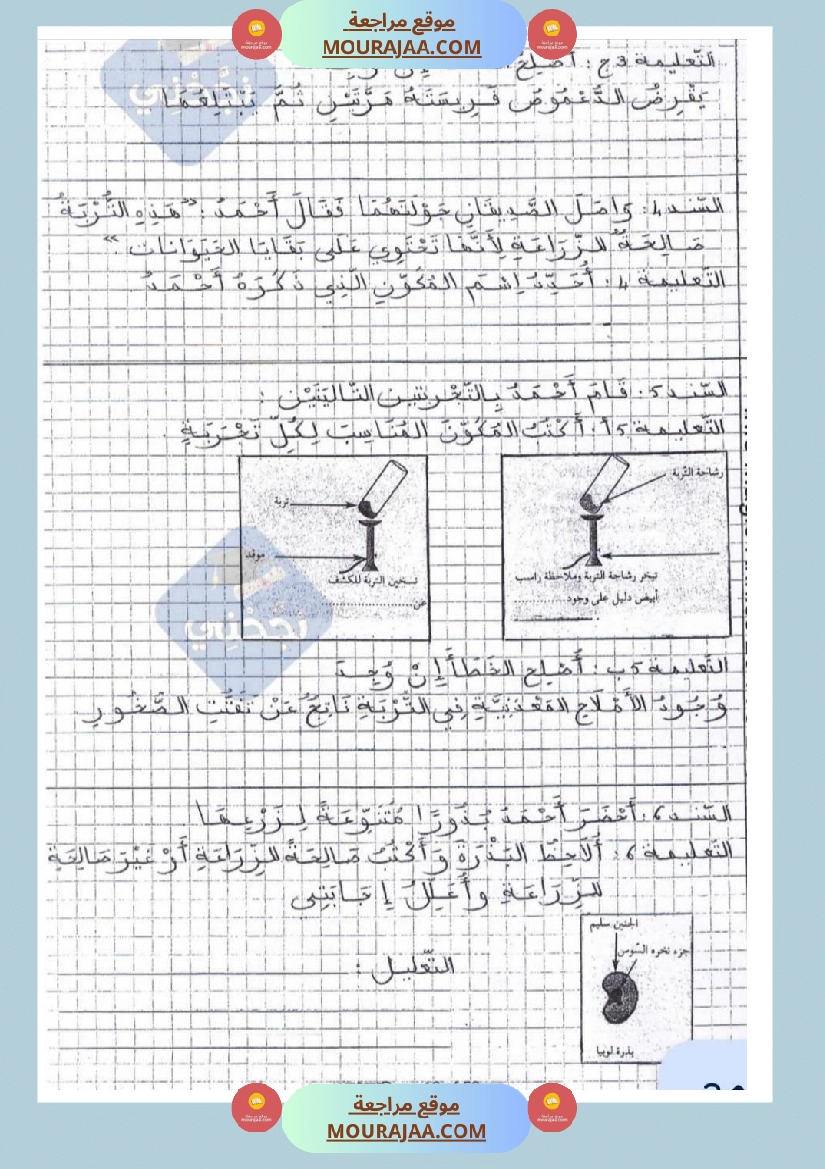 موقع مراجعة
MOURAJAA.COM
التعليمة 3ج: أصلح
يَقْرِضُ الدُّعْمُوصُ فَرِيسَتَهُ مَرَّتَيْنِ ثُمَّ يَبْتَلِعُهَا
السّند 4: وَاصَلَ الصَّدِيقَانِ جَوْلَتَهُمَا فَقَالَ أَحْمَدُ: "هَذِهِ التُّرْبَةُ
صَالِحَةٌ للزّرَاعَةِ لِأَنَّهَا تَحْتَوِي عَلَى بَقَايَا الحَيَوَانَات."
التّعليمة 4: أُحَدِّدُ اِسْمَ المُكَوّنِ الّذِي ذَكَرَهُ أَحْمَدُ
السّند 5: قَامَ أَحْمَدُ بِالتَّجْرِبَتَيْنِ التّالِيَتَيْنِ:
التّعليمة 5أ: أَكْتُبُ المُكَوّنَ المُنَاسِبَ لِكُلِّ تَجْرَبَةٍ.
رشاحة التّربة
تبخر رشاحة التربة وملاحظة راسب
أبيض دليل على وجود............
تربة
موقد
تسخين التربة للكشف
عن............
نجّحني
التّعليمة 5ب: أَصْلِح الخَطَأَ إِنْ وُجِدَ
وُجُودُ الأَمْلَاحِ المَعْدَنِيَّةِ فِي التُّرْبَةِ نَاتِجٌ عَنْ تَفَتُّتِ الصُّخُورِ
السّند 6: أَحْضَرَ أَحْمَدُ بُذُورًا مُتَنَوّعَةً لِزَرْعِهَا
التّعليمة 6: أُلَاحِظُ البَذْرَةَ وَأَكْتُبُ صَالِحَةً للزّرَاعَةِ أَوْ غَيْرَ صَالِحَةٍ
للزّرَاعَةِ وأُعَلّلُ إِجَابَتِي
الجنين سليم
جزء نخره السّوس
بذرة لوبيا
التّعليل:
موقع مراجعة
MOURAJAA.COM